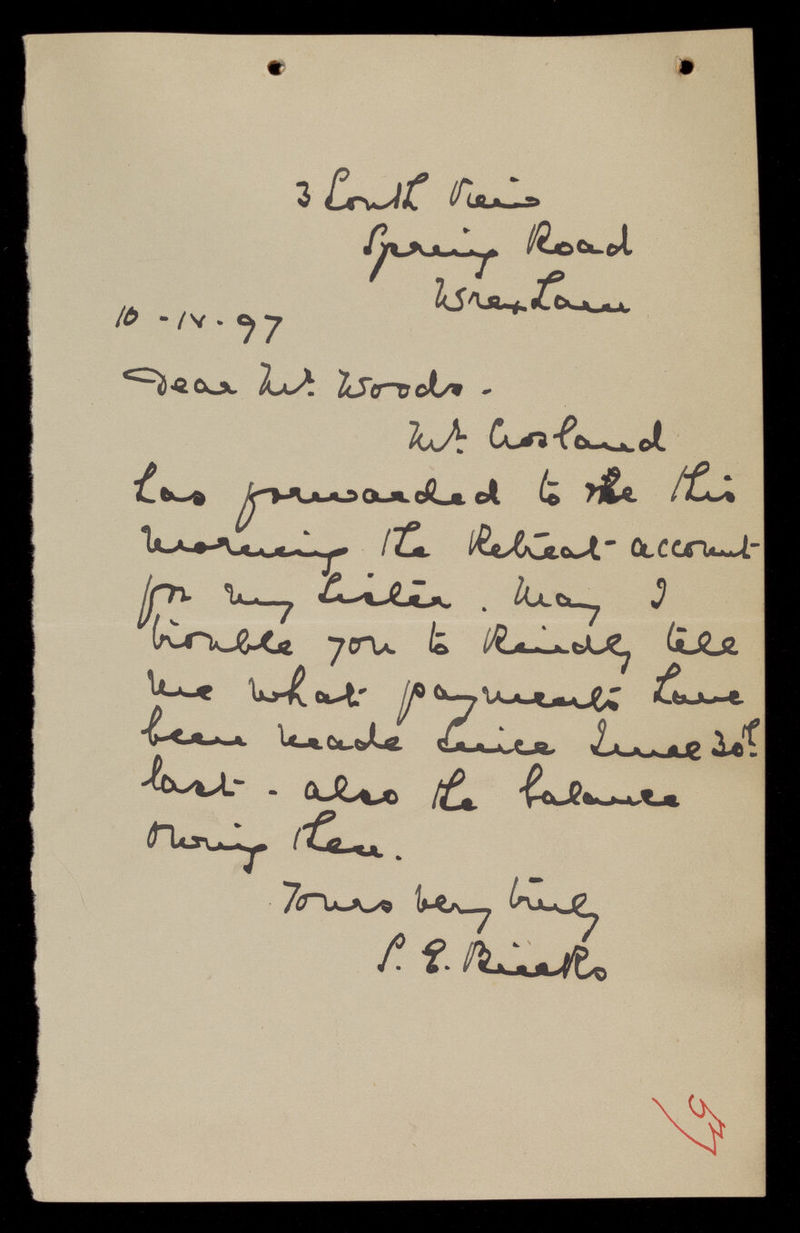 3 South View
Spring Road
Wrexham
10-12-97
Dear Mr. Woods -
Mr. Crosland
has forwarded to me this
morning the Retreat account
for my sister. May I
trouble you to kindly tell
me what payments have
been made since June 30th
last - also the balance
owing then.
Yours very truly
S. E.
57